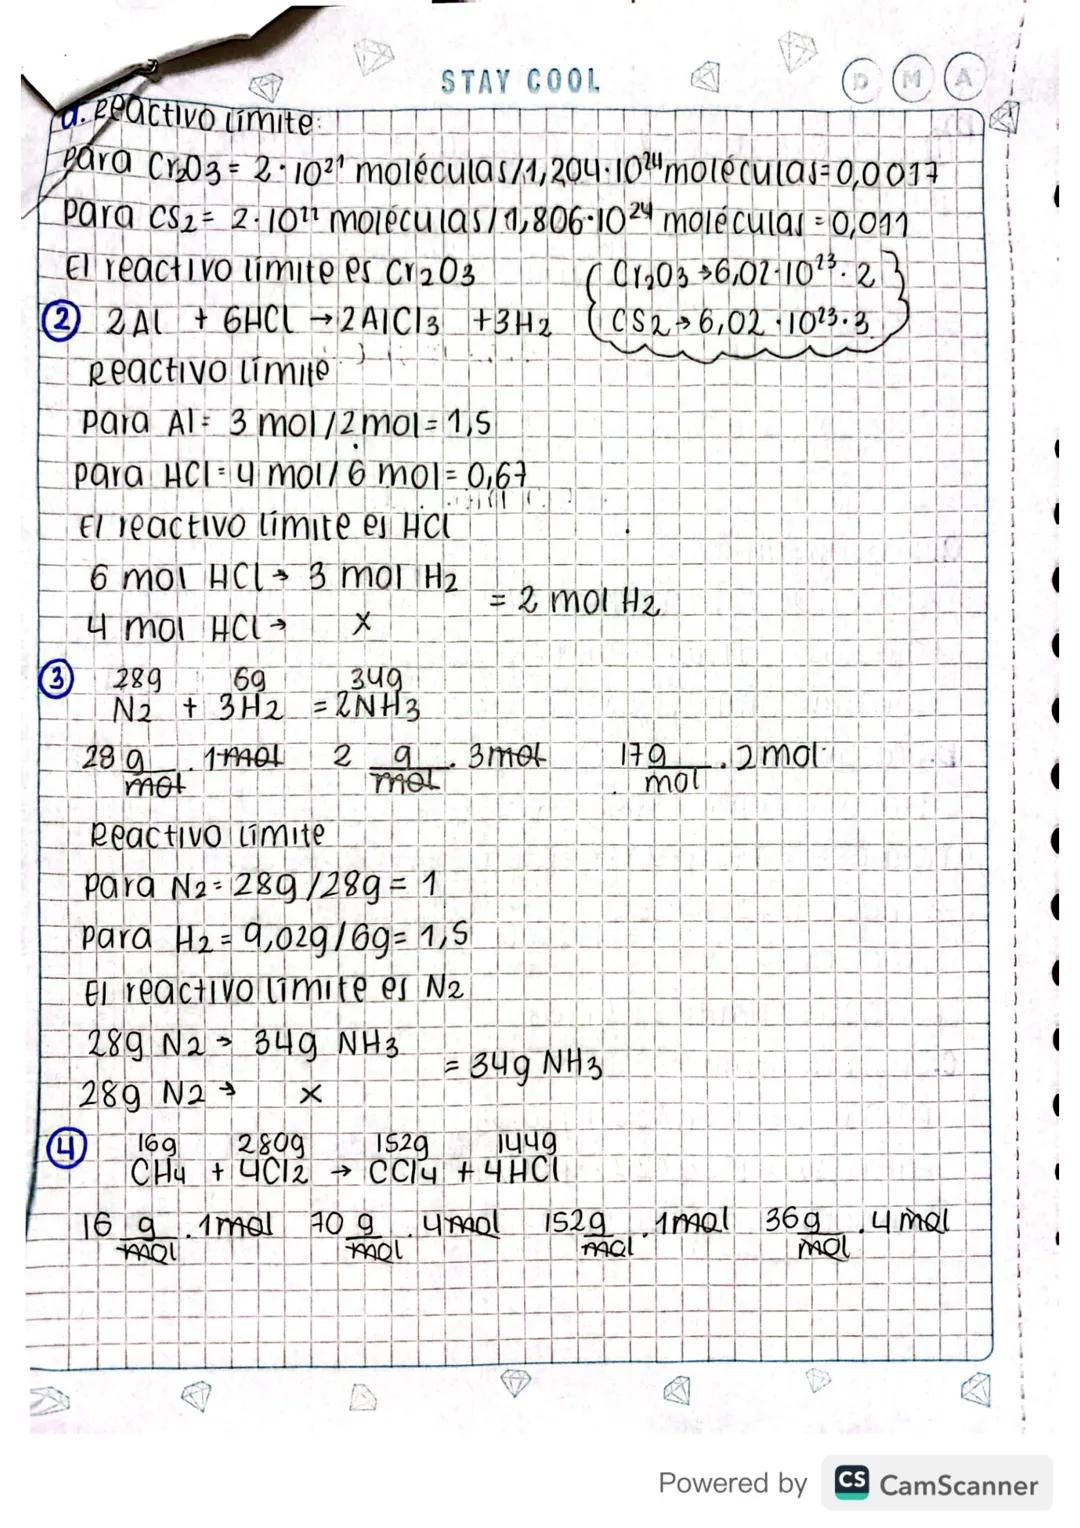 STAY COOL
D M A
a. Reactivo límite:
para Cr2O3 = 2 · 10²¹ moléculas/1,204·10²⁴ moléculas = 0,0017
para CS2 = 2·10²² moléculas/1,806·10²⁴ moléculas = 0,011
El reactivo límite es Cr2O3
Cr2O3 → 6,02·10²³ · 2
CS2 → 6,02 · 10²³ · 3
2 2Al + 6HCl → 2AlCl3 + 3H2
Reactivo límite
para Al = 3 mol/2 mol = 1,5
para HCl = 4 mol/6 mol = 0,67
El reactivo límite es HCl
6 mol HCl → 3 mol H2
= 2 mol H2
4 mol HCl → x
3 28g 6g 34g
N2 + 3H2 = 2NH3
28 g/mol · 1 mol 2 g/mol · 3 mol 17g/mol · 2 mol
Reactivo límite
para N2 = 28g/28g = 1
para H2 = 9,02g/6g = 1,5
El reactivo límite es N2
28g N2 → 34g NH3
= 34g NH3
28g N2 → x
4 16g 280g 152g 144g
CH4 + 4Cl2 → CCl4 + 4HCl
16 g/mol · 1 mol 70 g/mol · 4 mol 152g/mol · 1 mol 36g/mol · 4 mol
Powered by CS CamScanner